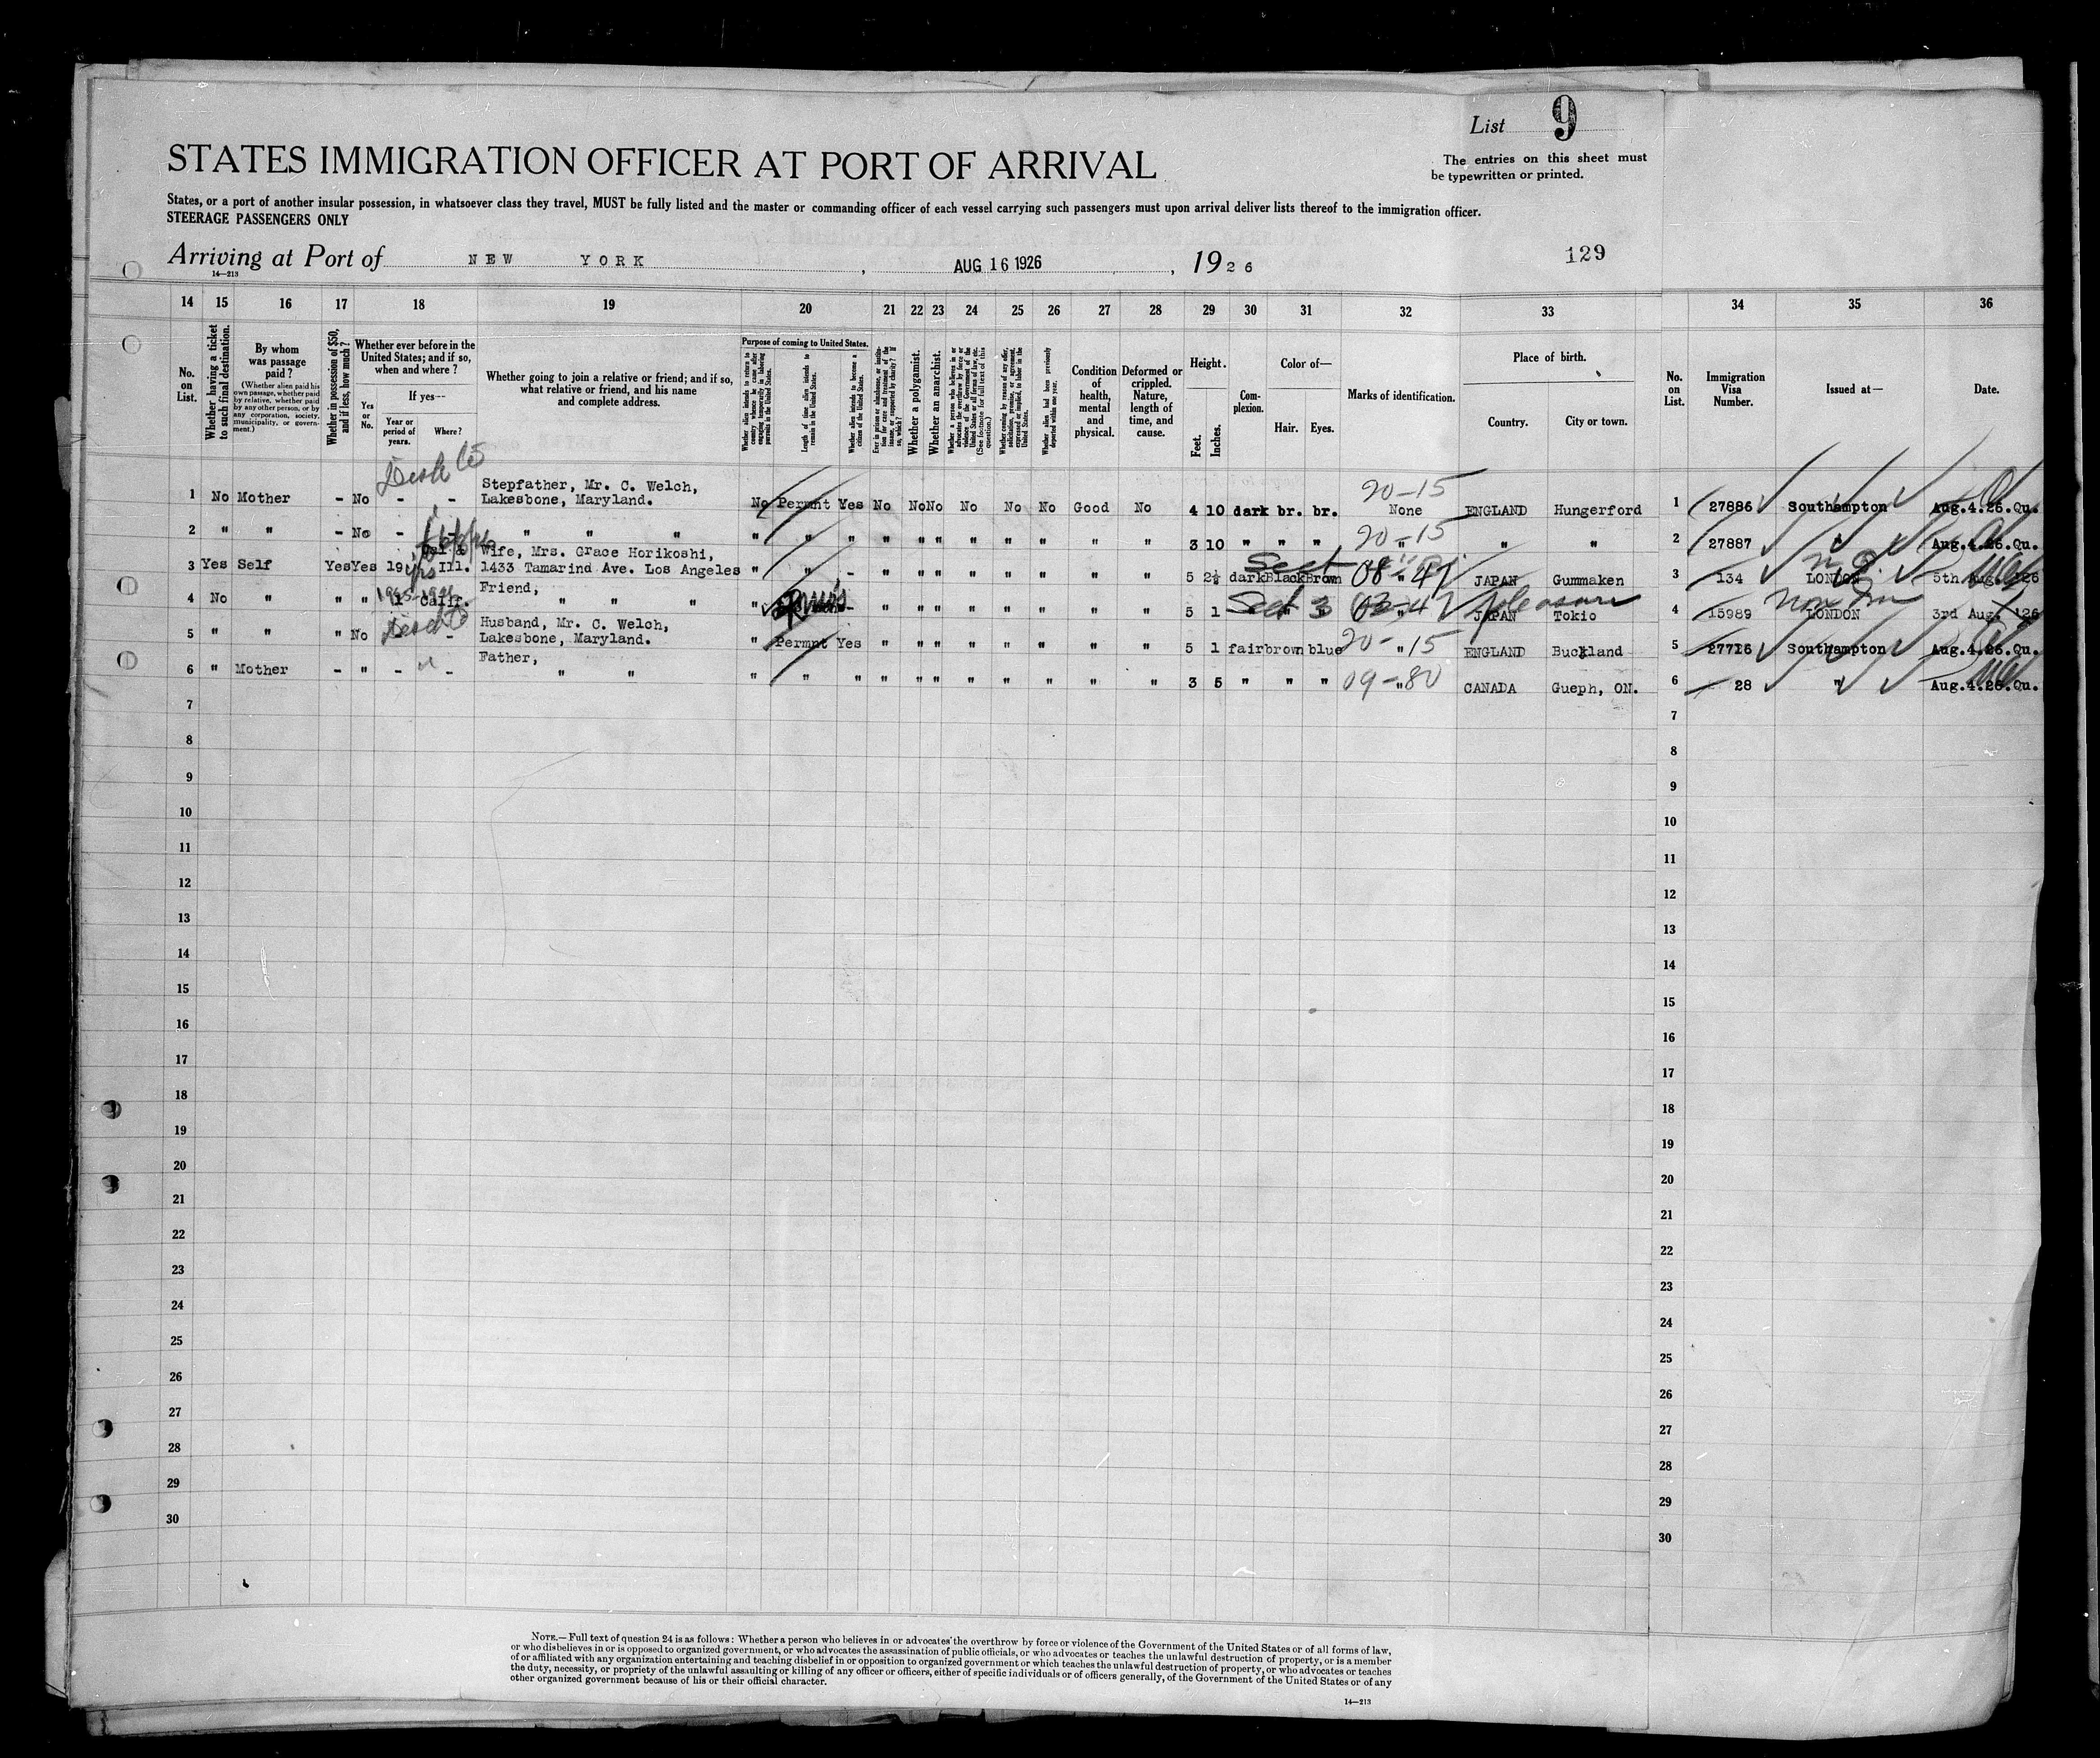 List 9
The entries on this sheet must
be typewritten or printed.
STATES IMMIGRATION OFFICER AT PORT OF ARRIVAL
States, or a port of another insular possession, in whatsoever class they travel, MUST be fully listed and the master or commanding officer of each vessel carrying such passengers must upon arrival deliver lists thereof to the immigration officer.
STEERAGE PASSENGERS ONLY
Arriving at Port of NEW YORK , AUG 16 1926 , 1926
14—213
129
14 15 16 17 18 19 20 21 22 23 24 25 26 27 28 29 30 31 32 33 34 35 36
No. on List.
Whether having a ticket to such final destination.
By whom was passage paid?
(Whether alien paid his own passage, whether paid by relative, whether paid by any other person, or by any corporation, society, municipality, or government.)
Whether in possession of $50, and if less, how much?
Whether ever before in the United States; and if so, when and where?
Yes or No.
If yes—
Year or period of years.
Where?
Whether going to join a relative or friend; and if so, what relative or friend, and his name and complete address.
Purpose of coming to United States.
Whether alien intends to return to country whence came after engaging temporarily in laboring pursuits in the United States.
Length of time alien intends to remain in the United States.
Whether alien intends to become a citizen of the United States.
Whether a polygamist.
Whether an anarchist.
Condition of health, mental and physical.
Deformed or crippled. Nature, length of time, and cause.
Height.
Feet. Inches.
Complexion.
Color of—
Hair. Eyes.
Marks of identification.
Place of birth.
Country. City or town.
No. on List.
Immigration Visa Number.
Issued at—
Date.
20-15
Stepfather, Mr. C. Welch,
1 No Mother - No - - Lakesbone, Maryland. No Permnt Yes No No No No No No Good No 4 10 dark br. br. None ENGLAND Hungerford 1 27886 Southampton Aug.4.26.Qu.
20-15
2 " " - No - " " " " " " " " " " " " " " " 3 10 " " " " " " 2 27887 " Aug.4.26.Qu.
Wife, Mrs. Grace Horikoshi,
3 Yes Self Yes Yes 19 yrs Ill. 1433 Tamarind Ave. Los Angeles " " - " " " " " " " " 5 2½ dark Black Brown 08-47 " JAPAN Gummaken 3 134 LONDON 5th Aug. '26
Friend,
4 No " " " Calif. " " " " " " " " " " " " 5 1 Sect 3 " pleasure JAPAN Tokio 4 15989 LONDON 3rd Aug. '26
Husband, Mr. C. Welch,
5 " " " No - Lakesbone, Maryland. " Permnt Yes " " " " " " " " 5 1 fair brown blue 20-15 " ENGLAND Buckland 5 27716 Southampton Aug.4.26.Qu.
Father,
6 " Mother - " - - " " " " " " " " " " " " " 3 5 " " " 09-80 " CANADA Gueph, ON. 6 28 " Aug.4.26.Qu.
7 7
8 8
9 9
10 10
11 11
12 12
13 13
14 14
15 15
16 16
17 17
18 18
19 19
20 20
21 21
22 22
23 23
24 24
25 25
26 26
27 27
28 28
29 29
30 30
NOTE.—Full text of question 24 is as follows: Whether a person who believes in or advocates the overthrow by force or violence of the Government of the United States or of all forms of law,
or who disbelieves in or is opposed to organized government, or who advocates the assassination of public officials, or who advocates or teaches the unlawful destruction of property, or is a member
of or affiliated with any organization entertaining and teaching disbelief in or opposition to organized government or which teaches the unlawful destruction of property, or who advocates or teaches
the duty, necessity, or propriety of the unlawful assaulting or killing of any officer or officers, either of specific individuals or of officers generally, of the Government of the United States or of any
other organized government because of his or their official character.
14—213